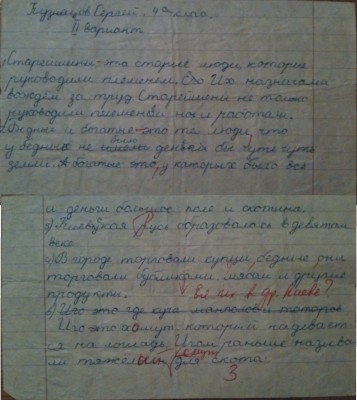 Кузнецов Сергей. 4а класс.
II вариант
1) Старейшины-это старые люди, которые
руководили племенем. Его Их назначали
вождём за труд. Старейшены не только
руководили племеней, но и работали.
2) Бедные и богатые-это те люди, что
у бедных не было деньги бы чуть чуть
земли. А богатые это, у каторых было всё
и деньги большое поле и скотина.
3) Киевская Русь образовалась в девятом
веке.
4) В городе торговали купцы, бедные они
торговали бубликами, мясам и другие
продукты. Всё это в др. Киеве?
5) Иго это где
Иго-это хомут, который надевает-
ся на лошадь. Игом раньше называ-
ли тяжёлый хомут для скота.
3